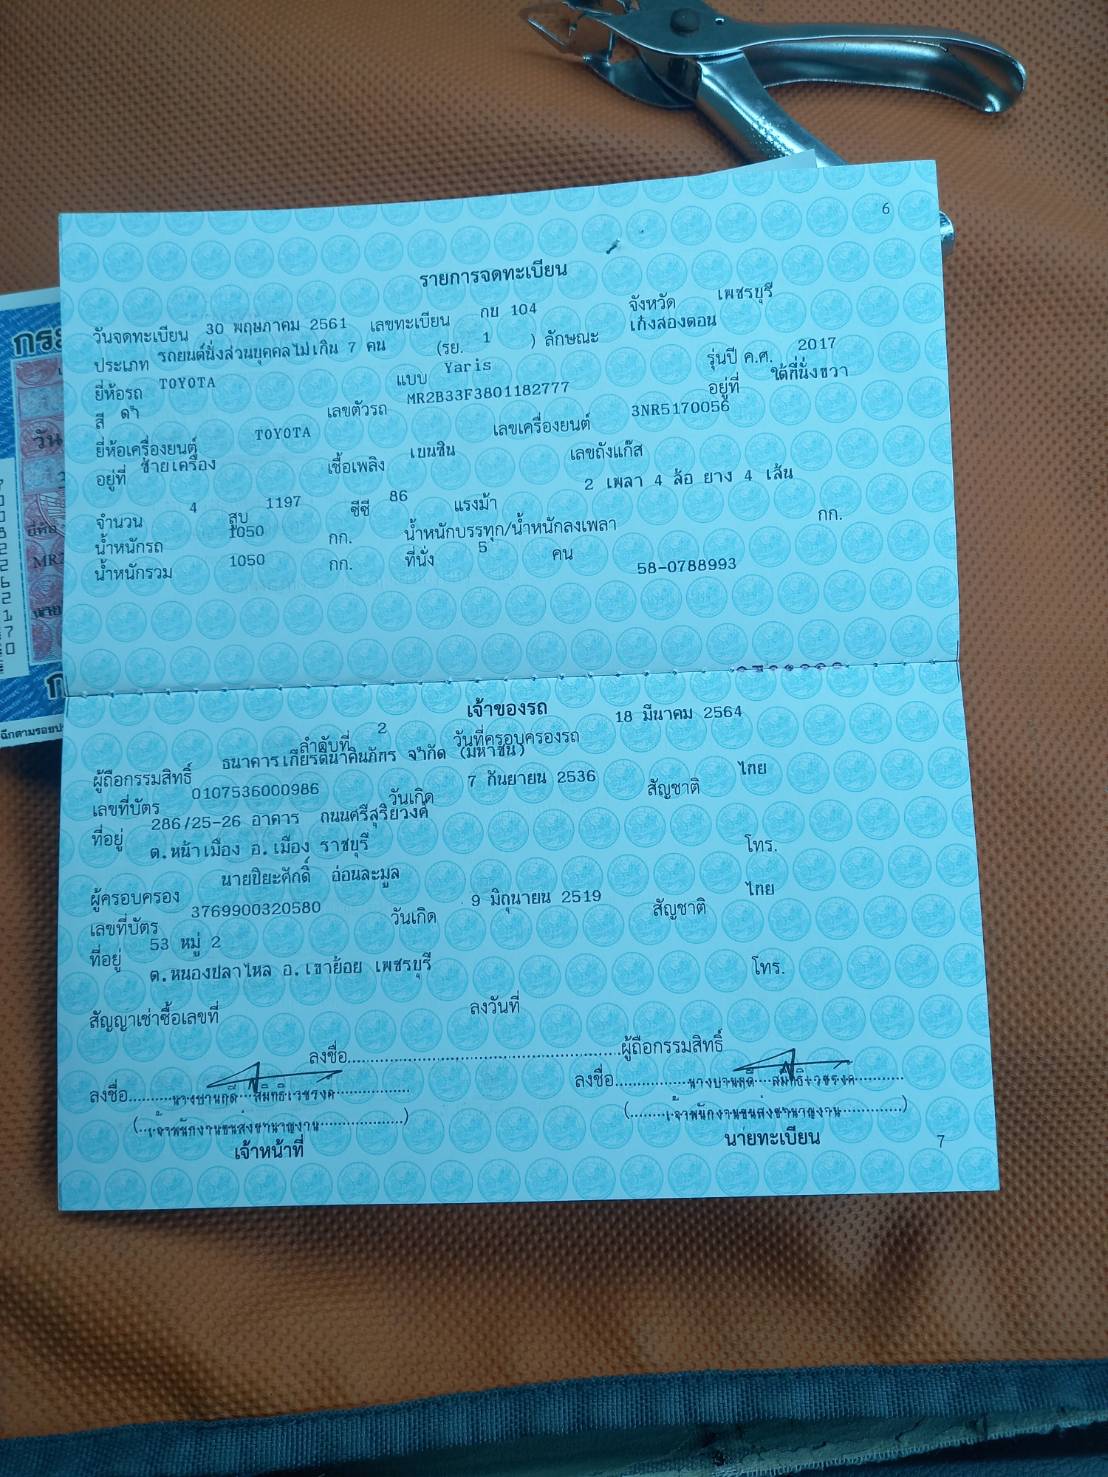 6
รายการจดทะเบียน
วันจดทะเบียน 30 พฤษภาคม 2561 เลขทะเบียน กบ 104 จังหวัด เพชรบุรี
ประเภท รถยนต์นั่งส่วนบุคคลไม่เกิน 7 คน (รย. 1 ) ลักษณะ เก๋งสองตอน
ยี่ห้อรถ TOYOTA แบบ Yaris รุ่นปี ค.ศ. 2017
สี ดำ เลขตัวรถ MR2B33F3801182777 อยู่ที่ ใต้ที่นั่งขวา
ยี่ห้อเครื่องยนต์ TOYOTA เลขเครื่องยนต์ 3NR5170056
อยู่ที่ ซ้ายเครื่อง เชื้อเพลิง เบนซิน เลขถังแก๊ส
จำนวน 4 สูบ 1197 ซีซี 86 แรงม้า 2 เพลา 4 ล้อ ยาง 4 เส้น
น้ำหนักรถ 1050 กก. น้ำหนักบรรทุก/น้ำหนักลงเพลา กก.
น้ำหนักรวม 1050 กก. ที่นั่ง 5 คน
58-0788993
เจ้าของรถ
ลำดับที่ 2 วันที่ครอบครองรถ 18 มีนาคม 2564
ผู้ถือกรรมสิทธิ์ ธนาคารเกียรตินาคินภัทร จำกัด (มหาชน)
เลขที่บัตร 0107536000986 วันเกิด 7 กันยายน 2536 สัญชาติ ไทย
ที่อยู่ 286/25-26 อาคาร ถนนศรีสุริยวงศ์
ต.หน้าเมือง อ.เมือง ราชบุรี โทร.
ผู้ครอบครอง นายปิยะศักดิ์ อ่อนละมูล
เลขที่บัตร 3769900320580 วันเกิด 9 มิถุนายน 2519 สัญชาติ ไทย
ที่อยู่ 53 หมู่ 2
ต.หนองปลาไหล อ.เขาย้อย เพชรบุรี โทร.
สัญญาเช่าซื้อเลขที่ ลงวันที่
ลงชื่อ ผู้ถือกรรมสิทธิ์
ลงชื่อ ลงชื่อ
(เจ้าพนักงานขนส่งชำนาญงาน) (เจ้าพนักงานขนส่งชำนาญงาน)
เจ้าหน้าที่ นายทะเบียน
7